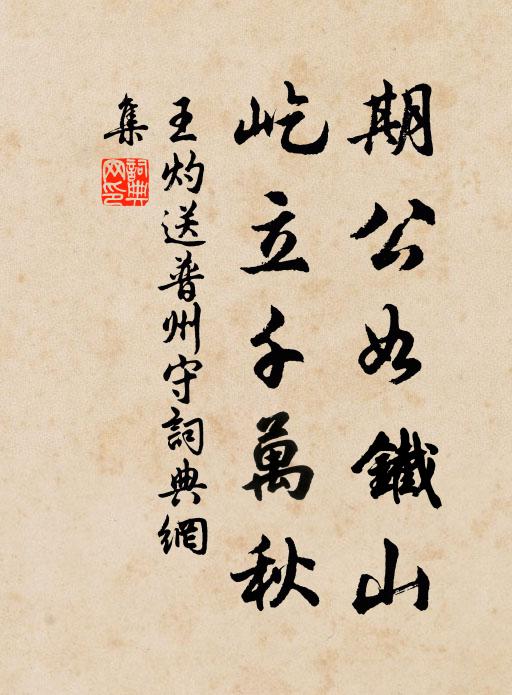 期公如鐵山
屹立千萬秋
王灼送普州守詞典網
集
詞典網印